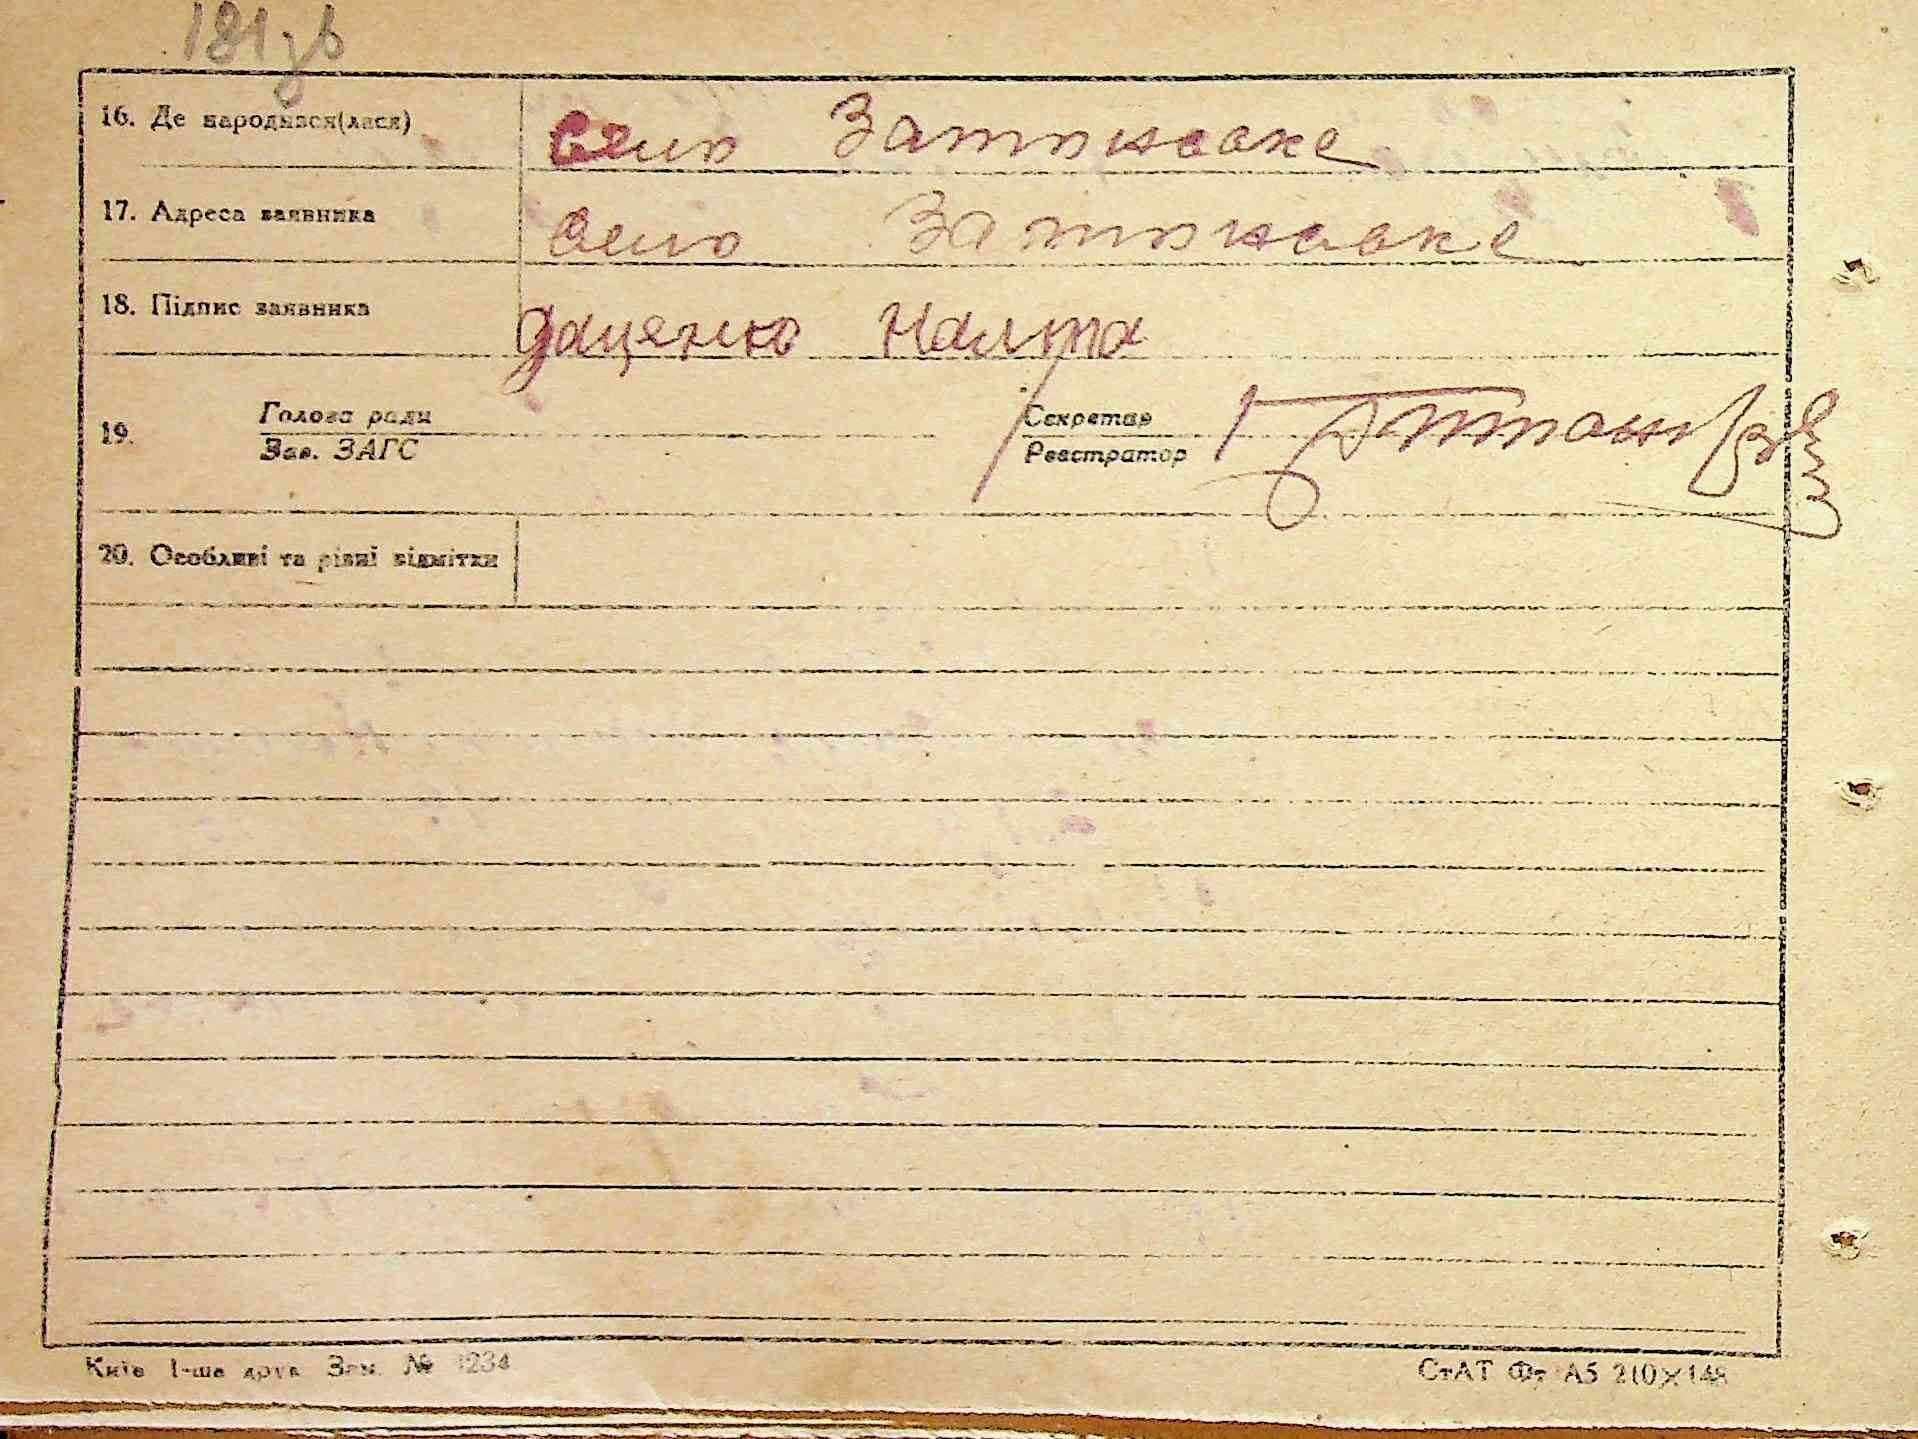 181зв
16. Де народився(лася) село Затоновке
17. Адреса заявника село Затоновке
18. Підпис заявника Даценко
19. Голова ради Секретар
Зав. ЗАГС Реєстратор
20. Особливі та різні відмітки
Київ 1-ша друк Зам. № 1234 СтАТ Фт А5 210×148